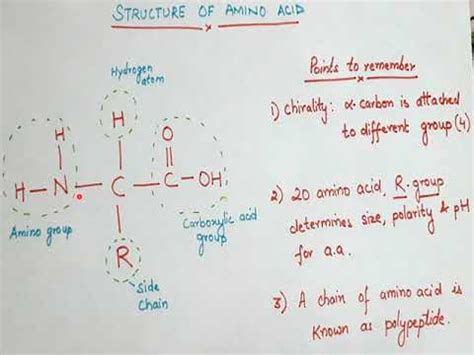 STRUCTURE OF AMINO ACID
Hydrogen
atom
H
H
O
H-N-C-C-OH
R
Amino group
Carboxylic acid
group
side
chain
Points to remember
1) Chirality: α-carbon is attached
to different group (4)
2) 20 amino acid, R-group
determines size, polarity & pH
for a.a.
3) A chain of amino acid is
known as polypeptide.